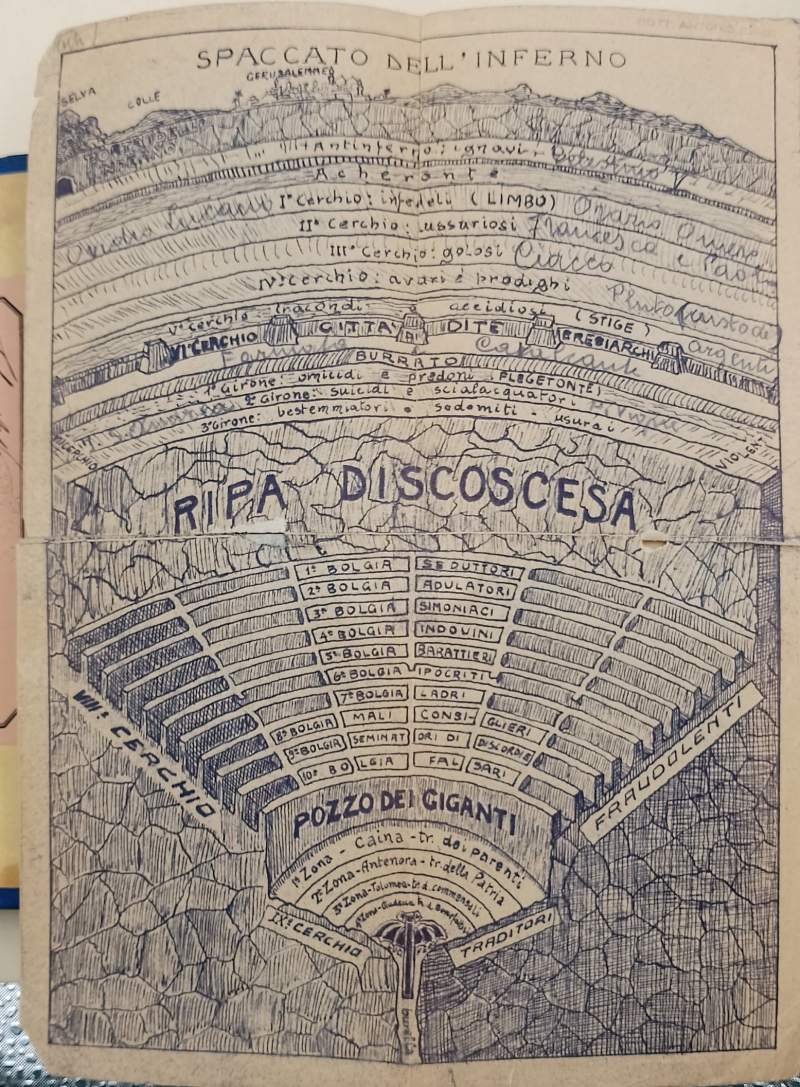 SPACCATO DELL'INFERNO
GERUSALEMME
SELVA
COLLE
Antinferno: ignavi
Acheronte
Iº Cerchio: infedeli (LIMBO) Orazio Omero
Ovidio Lucano
IIº Cerchio: lussuriosi Francesca e Paolo
IIIº Cerchio: golosi Ciacco
IVº Cerchio: avari e prodighi
Pluto (custode)
Vº Cerchio iracondi e accidiosi (STIGE)
VIº CERCHIO CITTÀ DI DITE ERESIARCHI Argenti
Farinata Cavalcante
BURRATO
1º Girone: omicidi e predoni (FLEGETONTE)
2º Girone: suicidi e scialacquatori
3º Girone: bestemmiatori e sodomiti - usurai
CERCHIO
VIOLENTI
RIPA DISCOSCESA
1ª BOLGIA SEDUTTORI
2ª BOLGIA ADULATORI
3ª BOLGIA SIMONIACI
4ª BOLGIA INDOVINI
5ª BOLGIA BARATTIERI
6ª BOLGIA IPOCRITI
7ª BOLGIA LADRI
8ª BOLGIA MALI CONSI-GLIERI
9ª BOLGIA SEMINATORI DI DISCORDIE
10ª BOLGIA FALSARI
VIIIº CERCHIO
FRAUDOLENTI
POZZO DEI GIGANTI
1ª Zona - Caina - tr. dei parenti
2ª Zona - Antenora - tr. della Patria
3ª Zona - Tolomea - tr. d. commensali
4ª Zona - Giudecca
IXº CERCHIO
TRADITORI